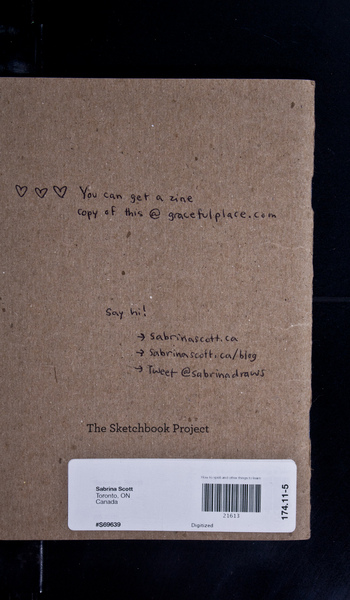 ♡ ♡ ♡ You can get a zine
copy of this @ gracefulplace.com
Say hi!
→ Sabrinascott.ca
→ Sabrinascott.ca/blog
→ Tweet @sabrinadraws
The Sketchbook Project
Sabrina Scott
Toronto, ON
Canada
#S69639
21613
Digitized
174.11-5